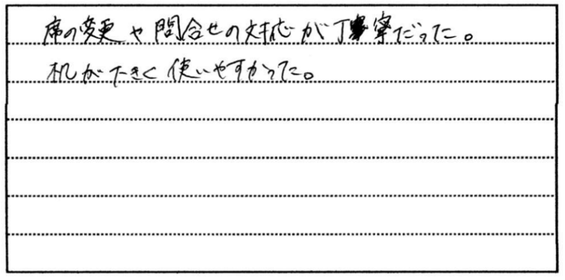 席の変更や問合せの対応が丁寧だった。
机が大きく使いやすかった。